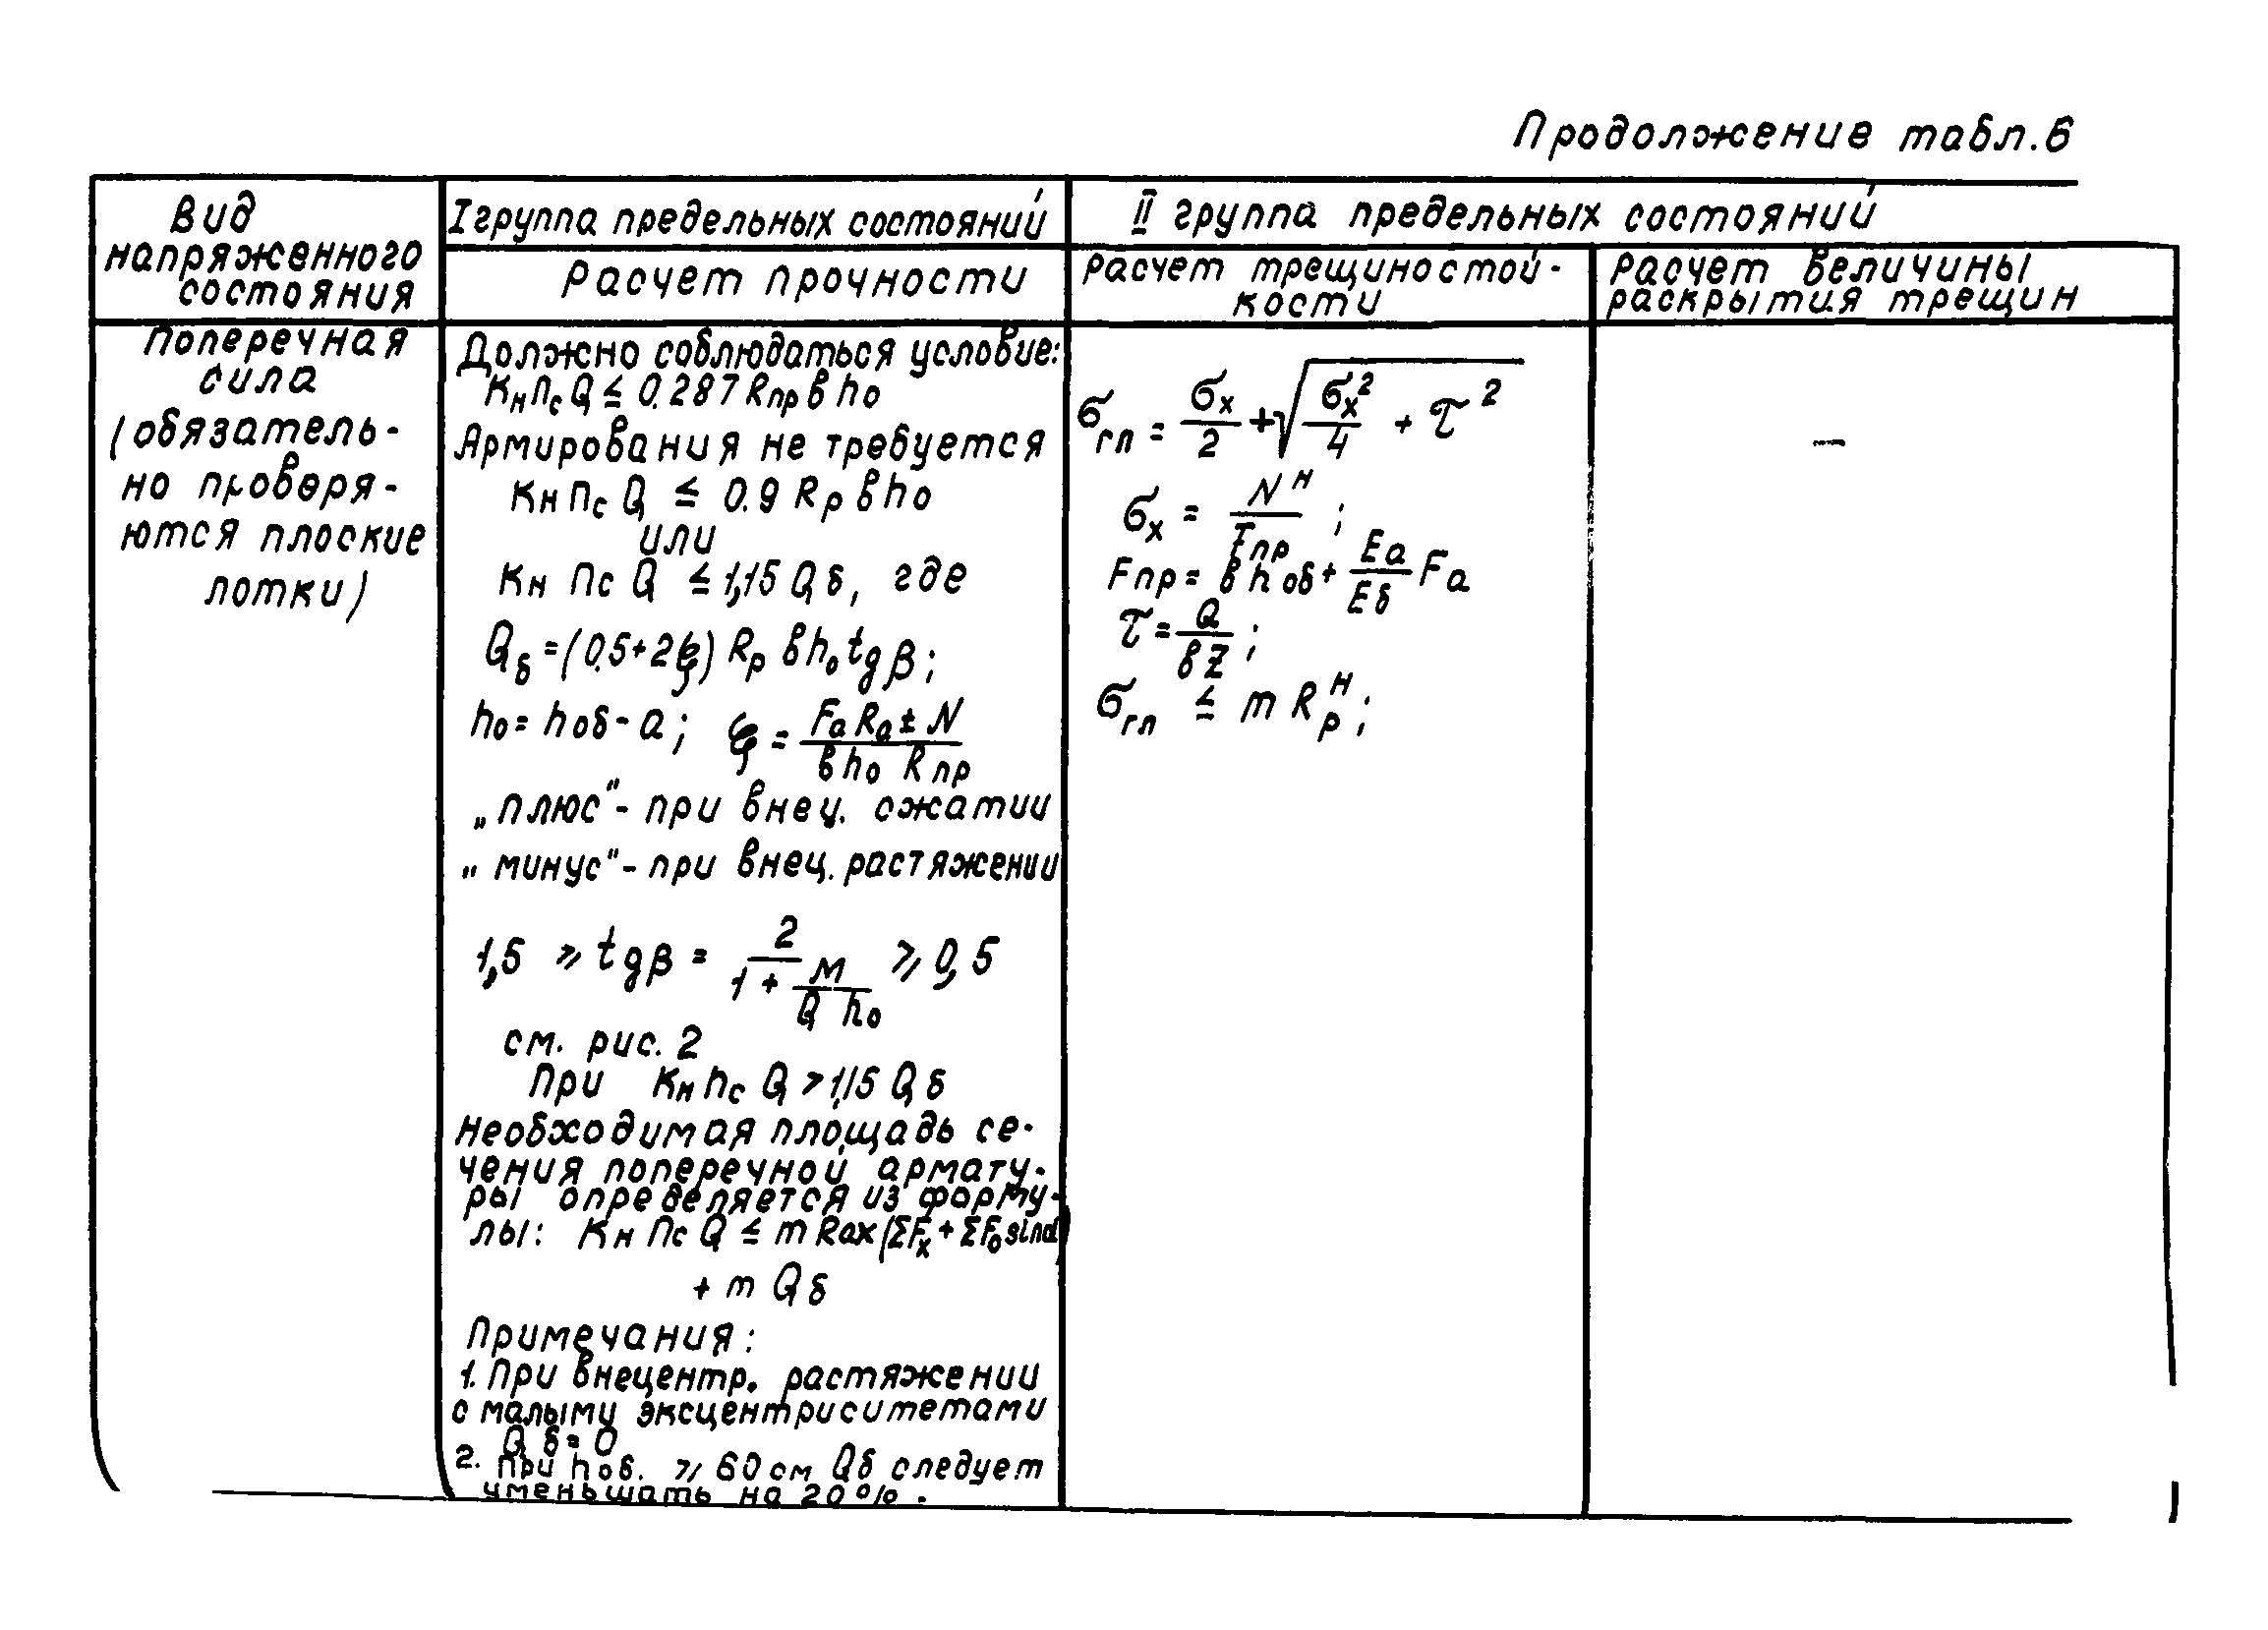 Продолжение табл.6
Вид
напряженного
состояния
I группа предельных состояний
II группа предельных состояний
Расчет прочности
Расчет трещиностой-
кости
Расчет величины
раскрытия трещин
Поперечная
сила
(обязатель-
но проверя-
ются плоские
лотки)
Должно соблюдаться условие:
Кн nс Q ≤ 0.287 Rпр в h₀
Армирования не требуется
Кн nс Q ≤ 0.9 Rр в h₀
или
Кн nс Q ≤ 1,15 Qб, где
Qб = (0.5+2ξ) Rр в h₀ tgβ;
h₀ = hоб - a; ξ = (Fa Ra ± N) / (в h₀ Rпр)
„плюс" - при внец. сжатии
„минус" - при внец. растяжении
1,5 ≥ tgβ = 2 / (1 + M / (Q h₀)) ≥ 0,5
см. рис. 2
При Кн nс Q > 1,15 Qб
необходимая площадь се-
чения поперечной армату-
ры определяется из форму-
лы: Кн nс Q ≤ m Rax (ΣFx + ΣF₀ sinα)
+ m Qб
Примечания:
1. При внецентр. растяжении
с малыми эксцентриситетами
Qб = 0
2. При hоб. ≥ 60 см Qб следует
уменьшать на 20%.
σгл = σx / 2 + √(σx² / 4 + τ²)
σx = Nᴴ / Fпр;
Fпр = в hоб + Ea / Eб Fa
τ = Q / (в Z);
σгл ≤ m Rрᴴ;
—